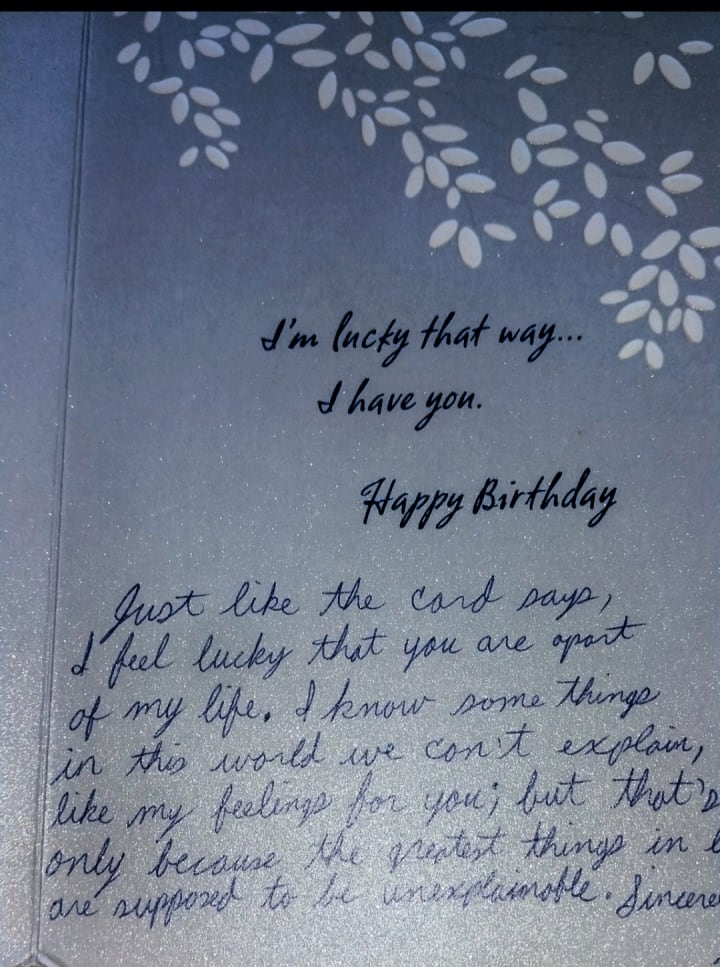 I'm lucky that way...
I have you.
Happy Birthday
Just like the card says,
I feel lucky that you are apart
of my life. I know some things
in this world we can't explain,
like my feelings for you; but that's
only because the greatest things in
are supposed to be unexplainable.